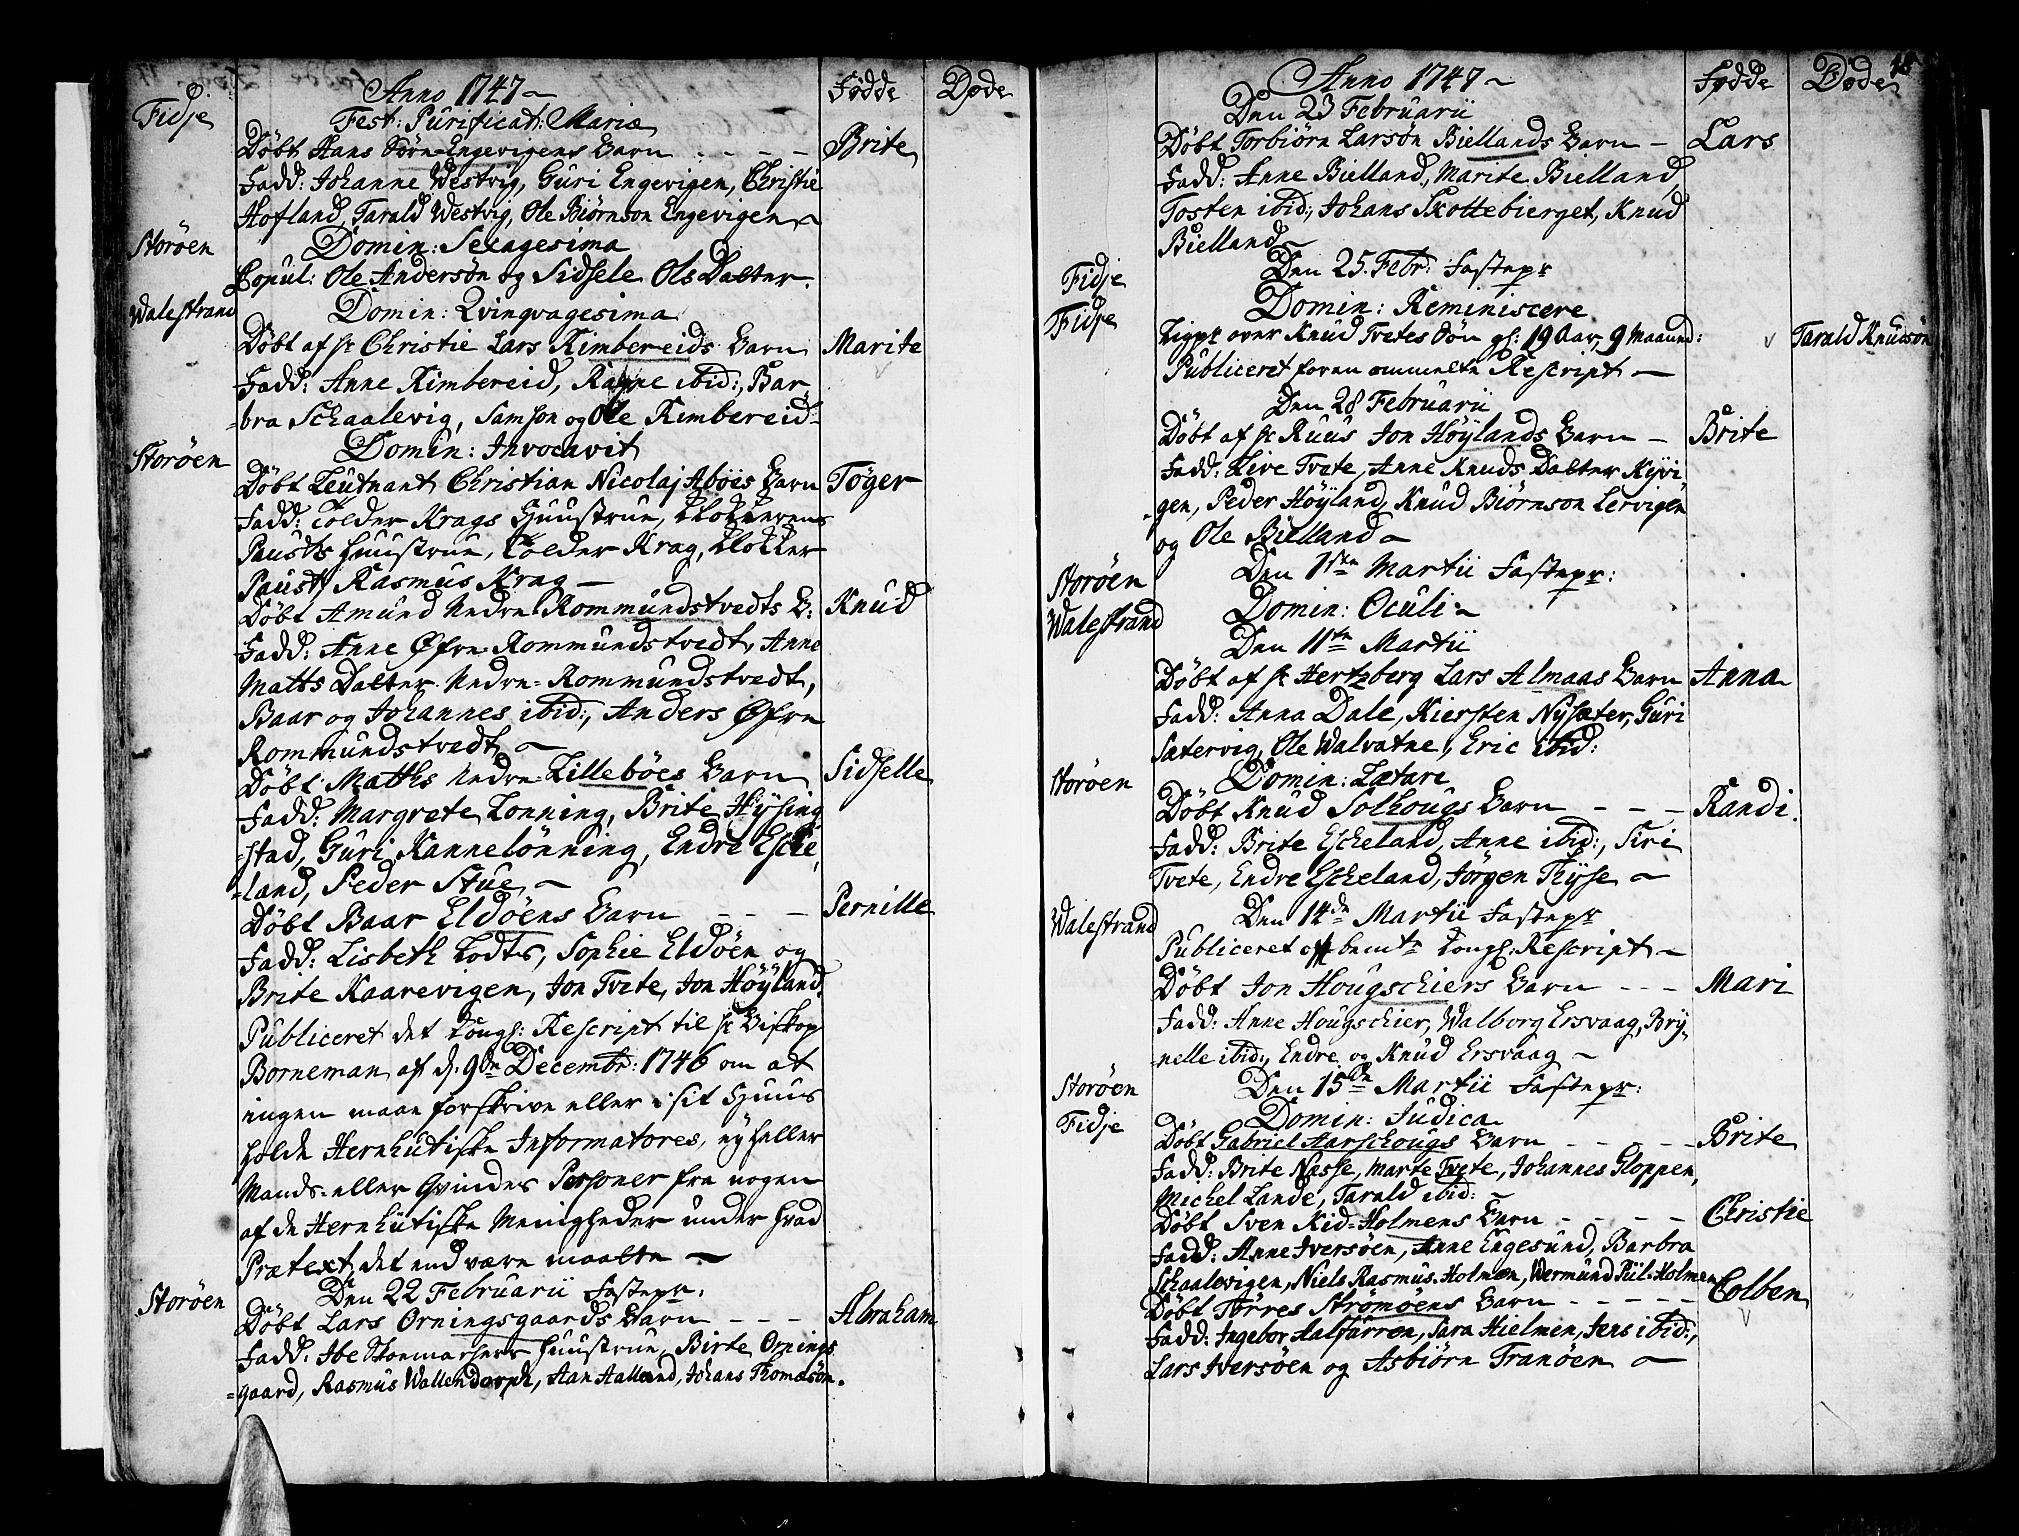 Anno 1747
Fødde
Døde
Fidje
Fest: Purificat: Mariæ
Døbt Hans Sørn-Engevigens Barn - - - - Brite
Fadd: Johanne Westvig, Guri Engevigen, Christie
Hofland, Tarald Westvig, Ole Biørnson Engevigen
Storøen
Domin: Sexagesima
Copul: Ole Andersøn og Sidsele Ols Datter.
Walestrand
Domin: Qvinqvagesima
Døbt af Hr Christie Lars Kimbereids Barn Marite
Fadd: Anne Kimbereid, ibid:, Bar
=bra Schaalevig, Samson og Ole Kimbereid
Storøen
Domin: Invocavit
Døbt Leutnant Christian Nicolaj Aböes Barn Tøger
Fadd: Tolder Krags Huustrue, Klokkerens
Pausts Huustrue, Tolder Krag, Klokker
Paust, Rasmus Krag -
Døbt Amund Nedre Rommundstvedts B: Knud
Fadd: Anne Øfre Rommundstvedt, Anne
Matts Datter Nedre-Rommundstvedt,
Baar og Johannes ibid:, Anders Øfre
Rommundstvedt
Døbt Matths Nedre-Lillebøes Barn Sidselle
Fadd: Margrete Lonning, Brite Hÿsing
=stad, Guri Kannelønning, Endre Esche
=land, Peder Stue
Døbt Baar Eldøens Barn - - - Pernille
Fadd: Lisbeth Lodts, Sophie Eldøen og
Brite Kaarevigen, Jon Tvete, Jon Höÿland
Publiceret det Kongl: Rescript til Hr Biskop
Borneman af d. 9de Decembr: 1746 om at
ingen maae forskrive eller i sit Huus
holde Hernhutiske Informatores, eÿ heller
Mands- eller Qvindes Personer fra nogen
af de Hernhutiske Menigheder under hvad
Prætext, det end være maatte -
Storøen
Den 22 Februarii Fastepr.
Døbt Lars Orningsgaards Barn - - - Abraham
Fadd: Huustrue, Birte Ornings
=gaard, Rasmus Wallendorph, Aan Aalland, Johans Thomæsøn.
Anno 1747
Fødde
Døde
Den 23 Februarii
Døbt Torbiørn Larsøn Biellands Barn - Lars
Fadd: Anne Bielland, Marite Bielland
Tosten ibid:, Johans Skottebierget, Knud
Bielland
Fidje
Den 25. Febr: Fastepr
Fidje
Domin: Reminiscere
Ligpr over Knud Tvetes Søn gl: 19 Aar, 9 Maaned: Tarald Knudsøn
Publiceret foren ommelte Rescript -
Den 28 Februarii
Døbt af Hr Ruus Jon Höÿlands Barn - Brite
Fadd: Live Tvete, Anne Knuds Datter Kÿvi
=gen, Peder Höÿland, Knud Biørnson Lervigen
og Ole Bielland
Storøen
Den 1ste Martii Fastepr:
Walestrand
Domin: Oculi
Den 11te Martii
Døbt af Hr Hertzberg Lars Almaas Barn Anna
Fadd: Anna Dale, Kiersten Nÿsæter, Guri
Sætervig, Ole Walvatne, Eric ibid:
Storøen
Domin: Lætare
Døbt Knud Solhougs Barn - - - Randi.
Fadd: Brite Escheland, Anne ibid:, Siri
Tvete, Endre Escheland, Jørgen Thÿse
Walestrand
Den 14de Martii Fastepr
Publiceret oft bemte Kongl: Rescript
Døbt Jon Hougschiers Barn - - - Mari
Fadd: Anne Hougschier, Walborg Ersvaag, Brÿ-
=nelle ibid:, Endre og Knud Ersvaag
Storøen
Den 15de Martii Fastepr:
Fidje
Domin: Judica
Døbt Gabriel Aarschougs Barn - - - - - Brite
Fadd: Brite Nesse, Marte Tvete, Johannes Gloppen,
Michel Lande, Tarald ibid:
Døbt Sven Kid=Holmens Barn - - - - - Christie
Fadd: Anne Iversøen, Anne Engesund, Barbra
Schaalevigen, Niels Rasmus-Holmen, Wermund Piil-Holmen
Døbt Tørres Strømøens Barn - - - - - Colben
Fadd: Ingebor Halfarrøn, Sara Hielmen, Jens ibid:,
Lars Iversøen og Asbiørn Tranøen